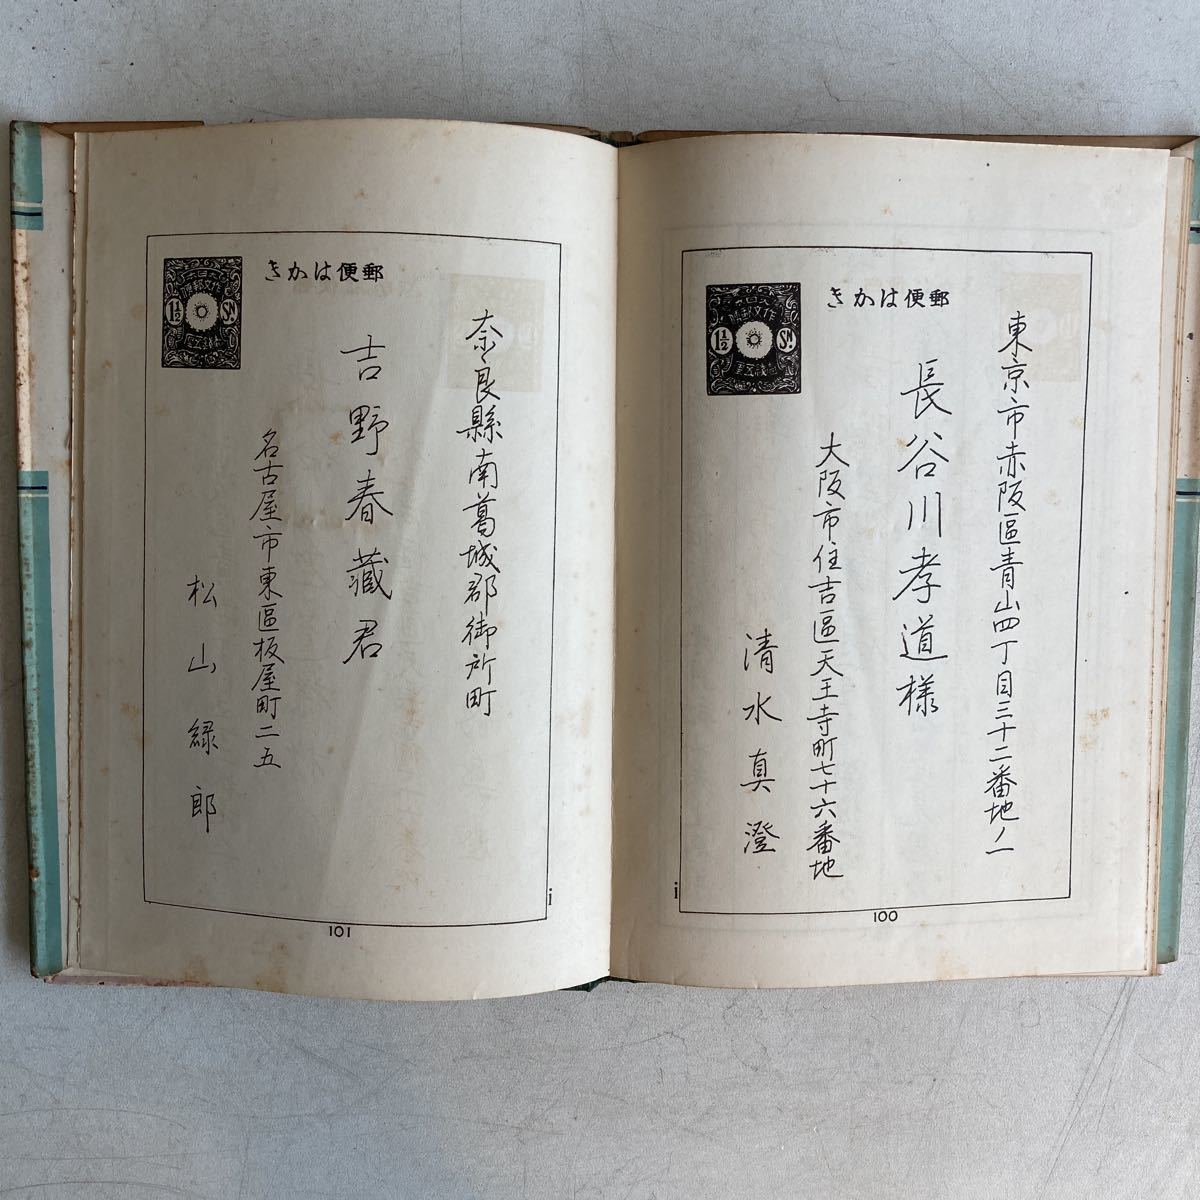 郵便はかき
1½ Sn.
東京市赤阪區青山四丁目三十二番地ノ一
長谷川孝道様
大阪市住吉區天王寺町七十六番地
清水真澄
i
100
郵便はかき
1½ Sn.
奈良縣南葛城郡御所町
吉野春藏君
名古屋市東區板屋町二五
松山緑郎
i
101